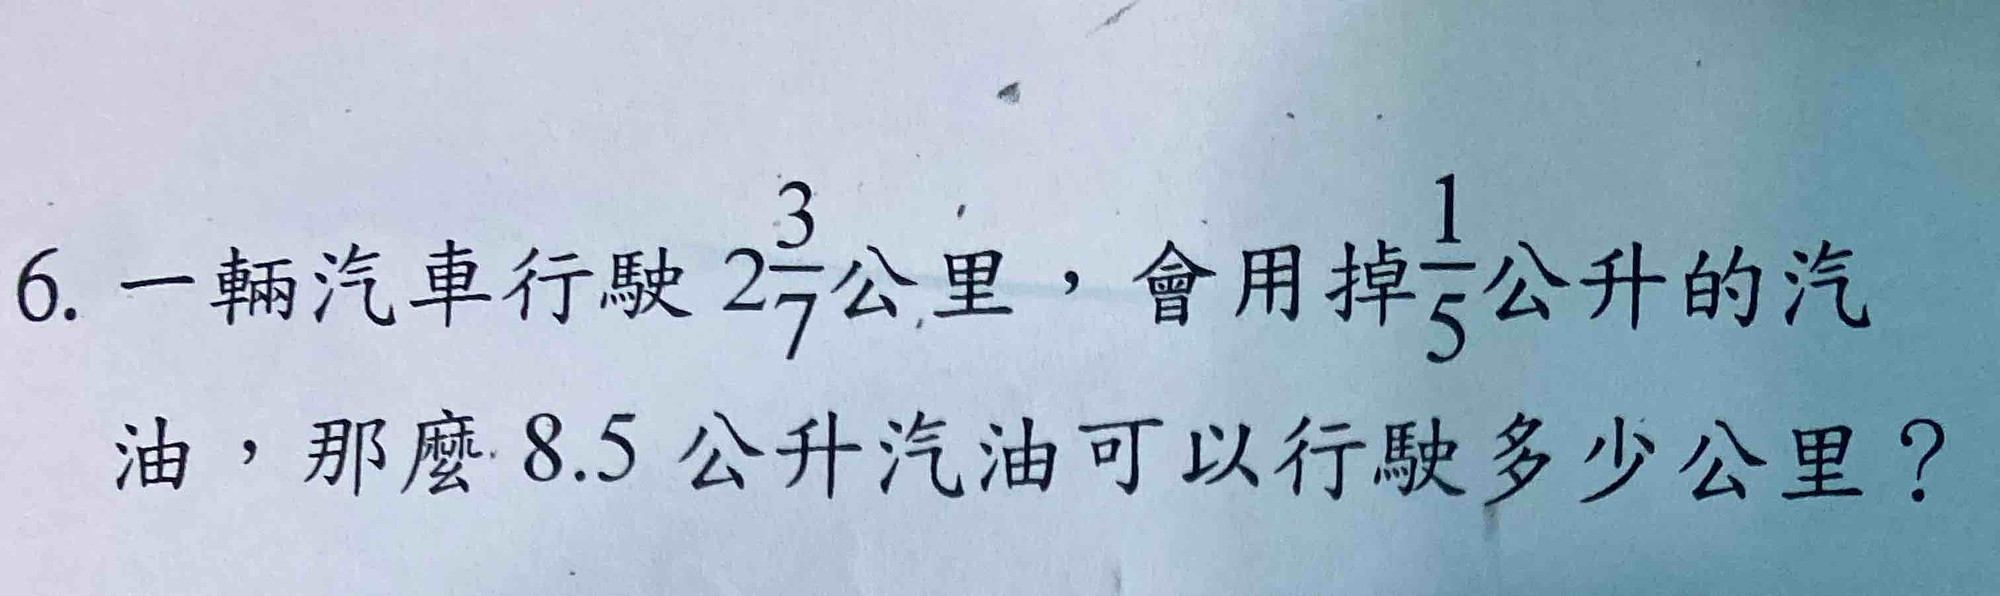 6. 一輛汽車行駛 2 3/7 公里，會用掉 1/5 公升的汽
油，那麼 8.5 公升汽油可以行駛多少公里？